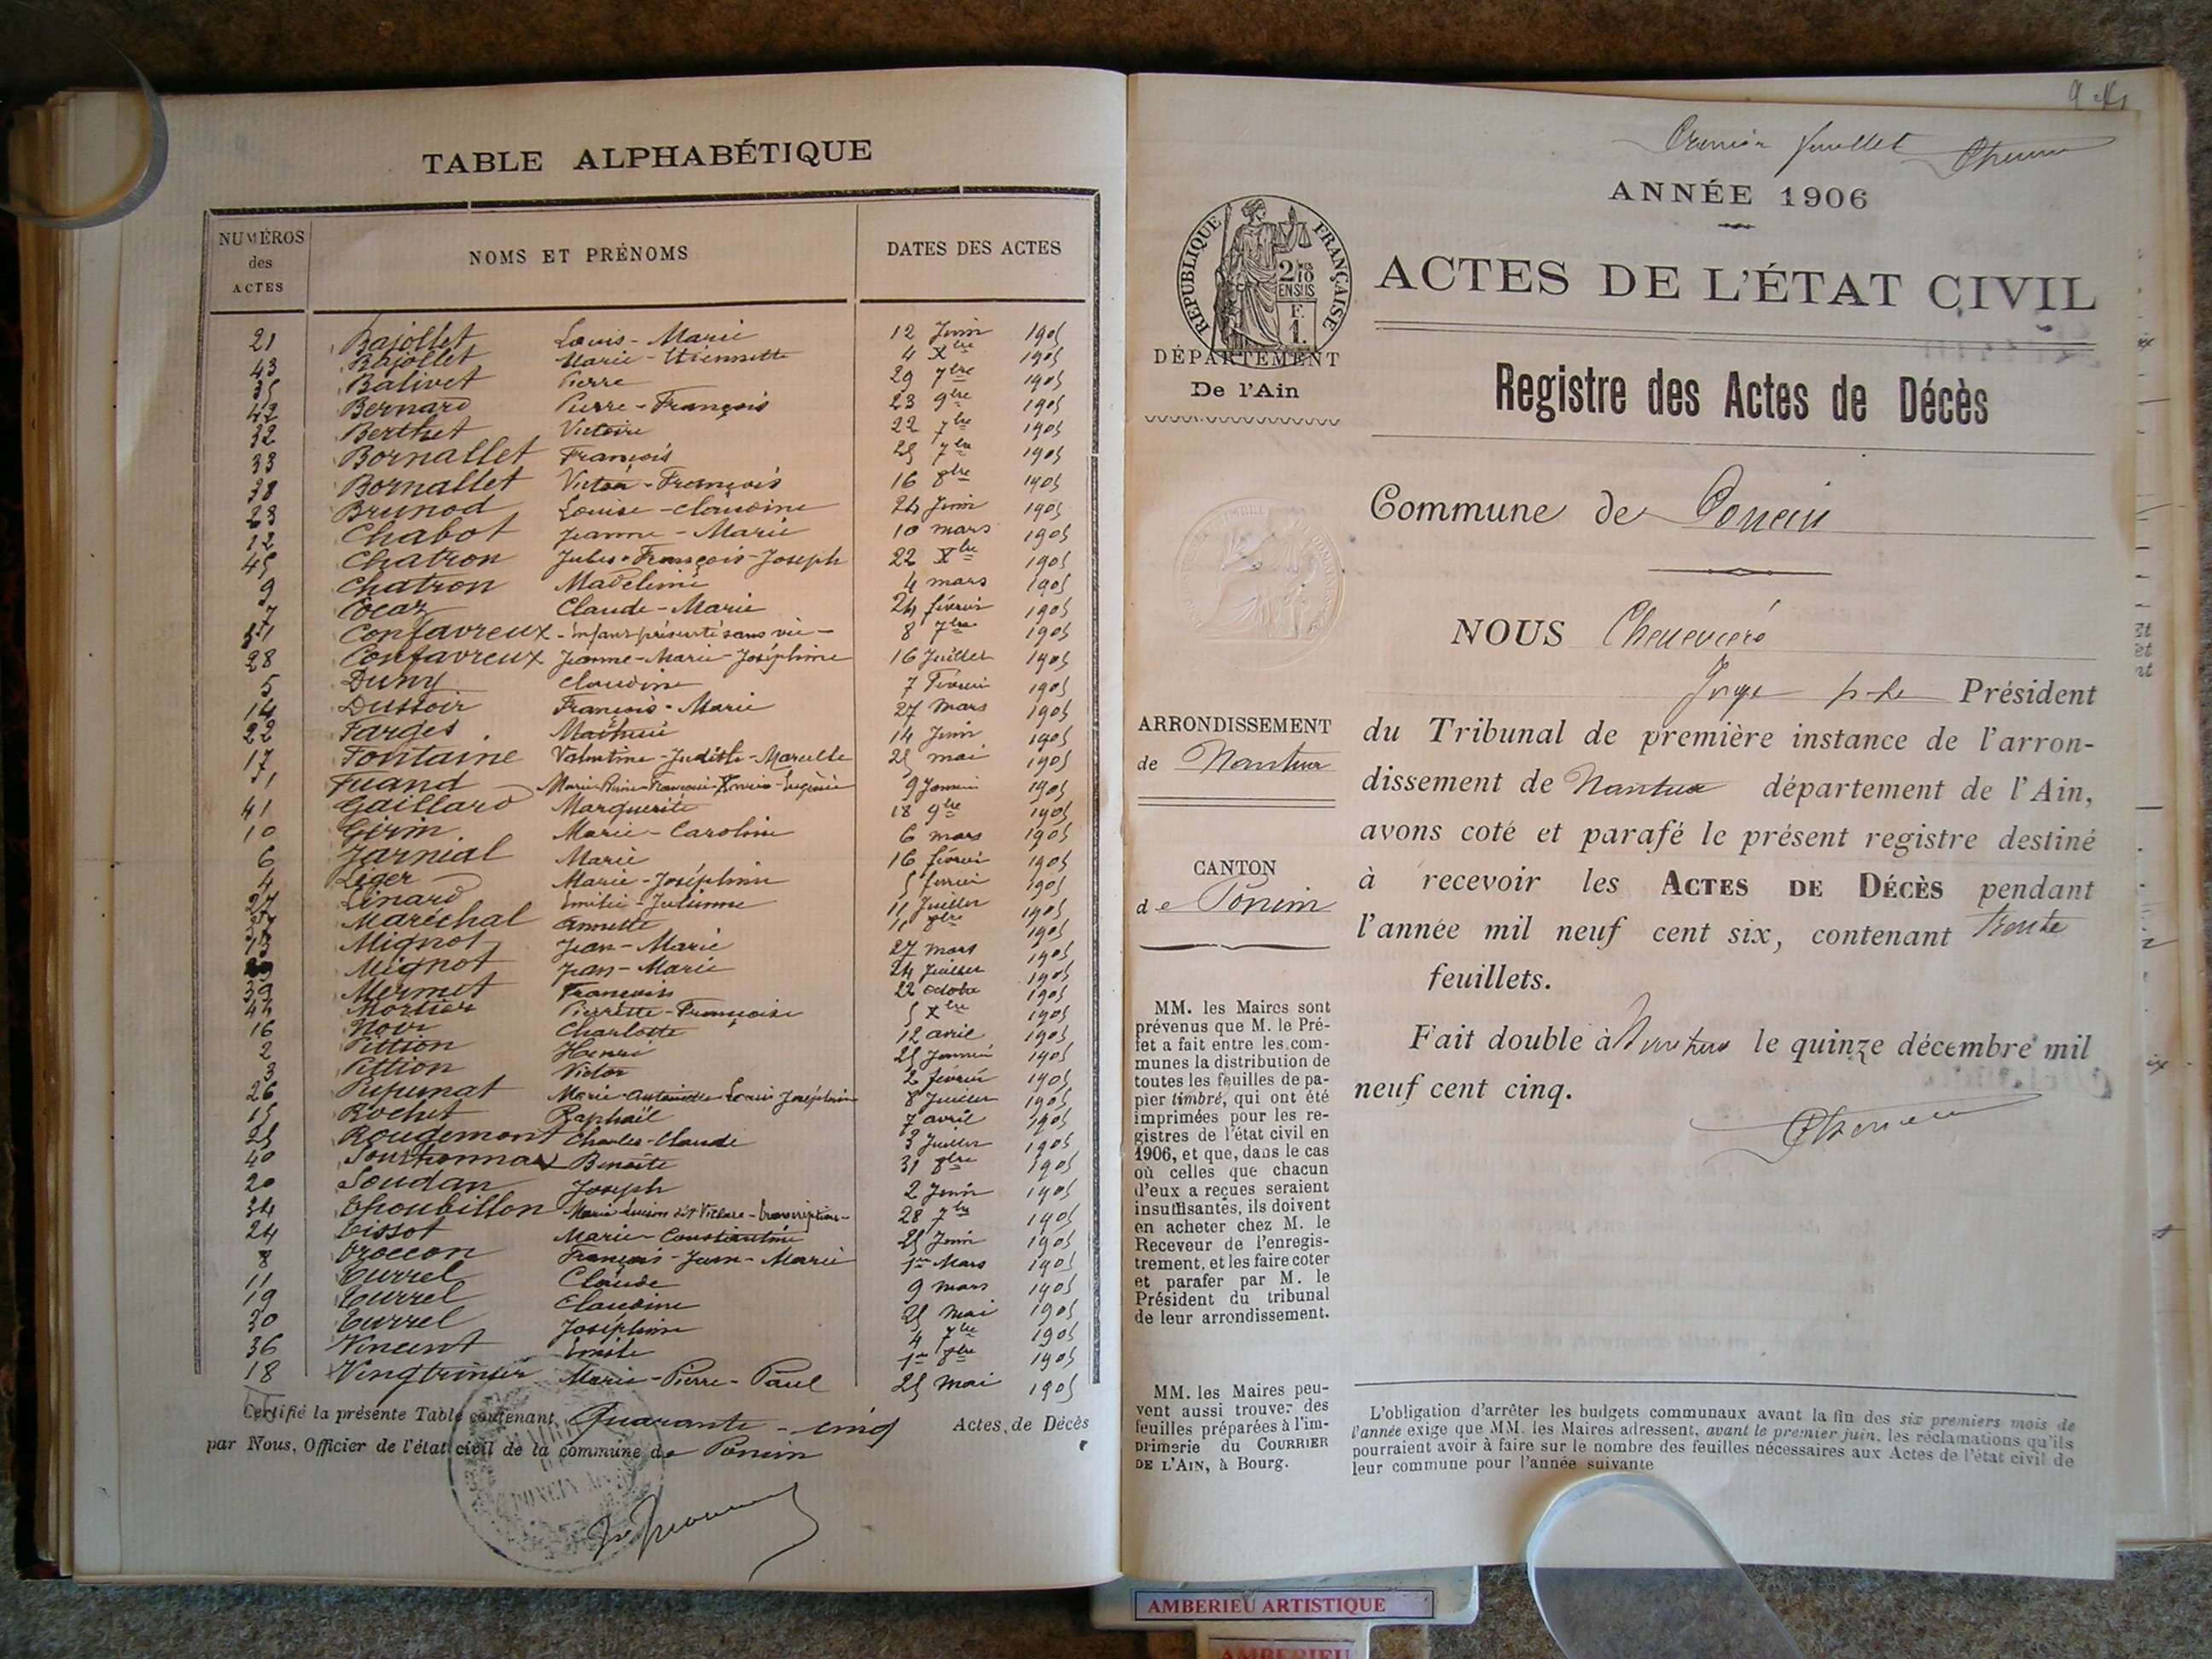 TABLE ALPHABÉTIQUE
NUMÉROS des ACTES NOMS ET PRÉNOMS DATES DES ACTES
21 Bajollet Louis-Marie 12 Juin 1905
43 Bajollet Marie-Etiennette 4 Xbre 1905
35 Balivet Pierre 29 7bre 1905
42 Bernard Pierre-François 23 9bre 1905
32 Berthet Victoire 22 7bre 1905
33 Bornallet François 25 7bre 1905
38 Bornallet Victor-François 16 8bre 1905
23 Brunod Louise-Claudine 24 Juin 1905
12 Chabot Jeanne-Marie 10 mars 1905
45 Chatron Jules-François-Joseph 22 Xbre 1905
9 Chatron Madeleine 4 mars 1905
7 Cocaz Claude-Marie 24 février 1905
31 Confavreux - Enfant présenté sans vie - 8 7bre 1905
28 Confavreux Jeanne-Marie-Joséphine 16 Juillet 1905
5 Duny Claudine 7 Février 1905
14 Dussoir François-Marie 27 mars 1905
22 Farges Mathieu 14 Juin 1905
17 Fontaine Valentine-Judith-Marcelle 25 mai 1905
1 Fuand 9 Janvier 1905
41 Gaillard Marguerite 18 9bre 1905
10 Girin Marie-Caroline 6 mars 1905
6 Jarnial Marie 16 février 1905
4 Liger Marie-Joséphine 5 février 1905
27 Linard Emilie-Julienne 11 Juillet 1905
37 Maréchal Annette 11 8bre 1905
13 Mignot Jean-Marie 27 mars 1905
29 Mignot Jean-Marie 24 Juillet 1905
39 Mermet François 22 octobre 1905
44 Mortier Pierrette-Françoise 5 Xbre 1905
16 Charlotte 12 avril 1905
2 Pittion Henri 25 Janvier 1905
3 Pittion Victor 2 février 1905
26 Pupunat Marie-Antoinette Joséphine 8 Juillet 1905
15 Rochet Raphaël 7 avril 1905
25 Rougemont Charles-Claude 3 Juillet 1905
40 Sonthonnax Benoîte 31 8bre 1905
20 Soudan Joseph 2 Juin 1905
34 Thoubillon 28 7bre 1905
24 Tissot Marie-Constantine 25 Juin 1905
8 Troccon François-Jean-Marie 1er Mars 1905
11 Turrel Claude 9 mars 1905
19 Turrel Claudine 25 mai 1905
30 Turrel Joséphine 4 7bre 1905
36 Vincent Emile 1er 8bre 1905
18 Vingtrinier Marie-Pierre-Paul 25 mai 1905
Certifié la présente Table contenant Quarante-cinq Actes de Décès
par Nous, Officier de l'état civil de la commune de Poncin
Premier feuillet
ANNÉE 1906
RÉPUBLIQUE FRANÇAISE
ACTES DE L'ÉTAT CIVIL
DÉPARTEMENT
De l'Ain
Registre des Actes de Décès
Commune de Poncin
NOUS
Juge Président
ARRONDISSEMENT
de Nantua
du Tribunal de première instance de l'arron-
dissement de Nantua département de l'Ain,
avons coté et parafé le présent registre destiné
CANTON
de Poncin
à recevoir les ACTES DE DÉCÈS pendant
l'année mil neuf cent six, contenant trente
feuillets.
Fait double à Nantua le quinze décembre mil
neuf cent cinq.
MM. les Maires sont
prévenus que M. le Pré-
fet a fait entre les com-
munes la distribution de
toutes les feuilles de pa-
pier timbré, qui ont été
imprimées pour les re-
gistres de l'état civil en
1906, et que, dans le cas
où celles que chacun
d'eux a reçues seraient
insuffisantes, ils doivent
en acheter chez M. le
Receveur de l'enregis-
trement, et les faire coter
et parafer par M. le
Président du tribunal
de leur arrondissement.
MM. les Maires peu-
vent aussi trouver des
feuilles préparées à l'im-
primerie du COURRIER
DE L'AIN, à Bourg.
L'obligation d'arrêter les budgets communaux avant la fin des six premiers mois de
l'année exige que MM. les Maires adressent, avant le premier juin, les réclamations qu'ils
pourraient avoir à faire sur le nombre des feuilles nécessaires aux Actes de l'état civil de
leur commune pour l'année suivante
AMBERIEU ARTISTIQUE
AMBERIEU